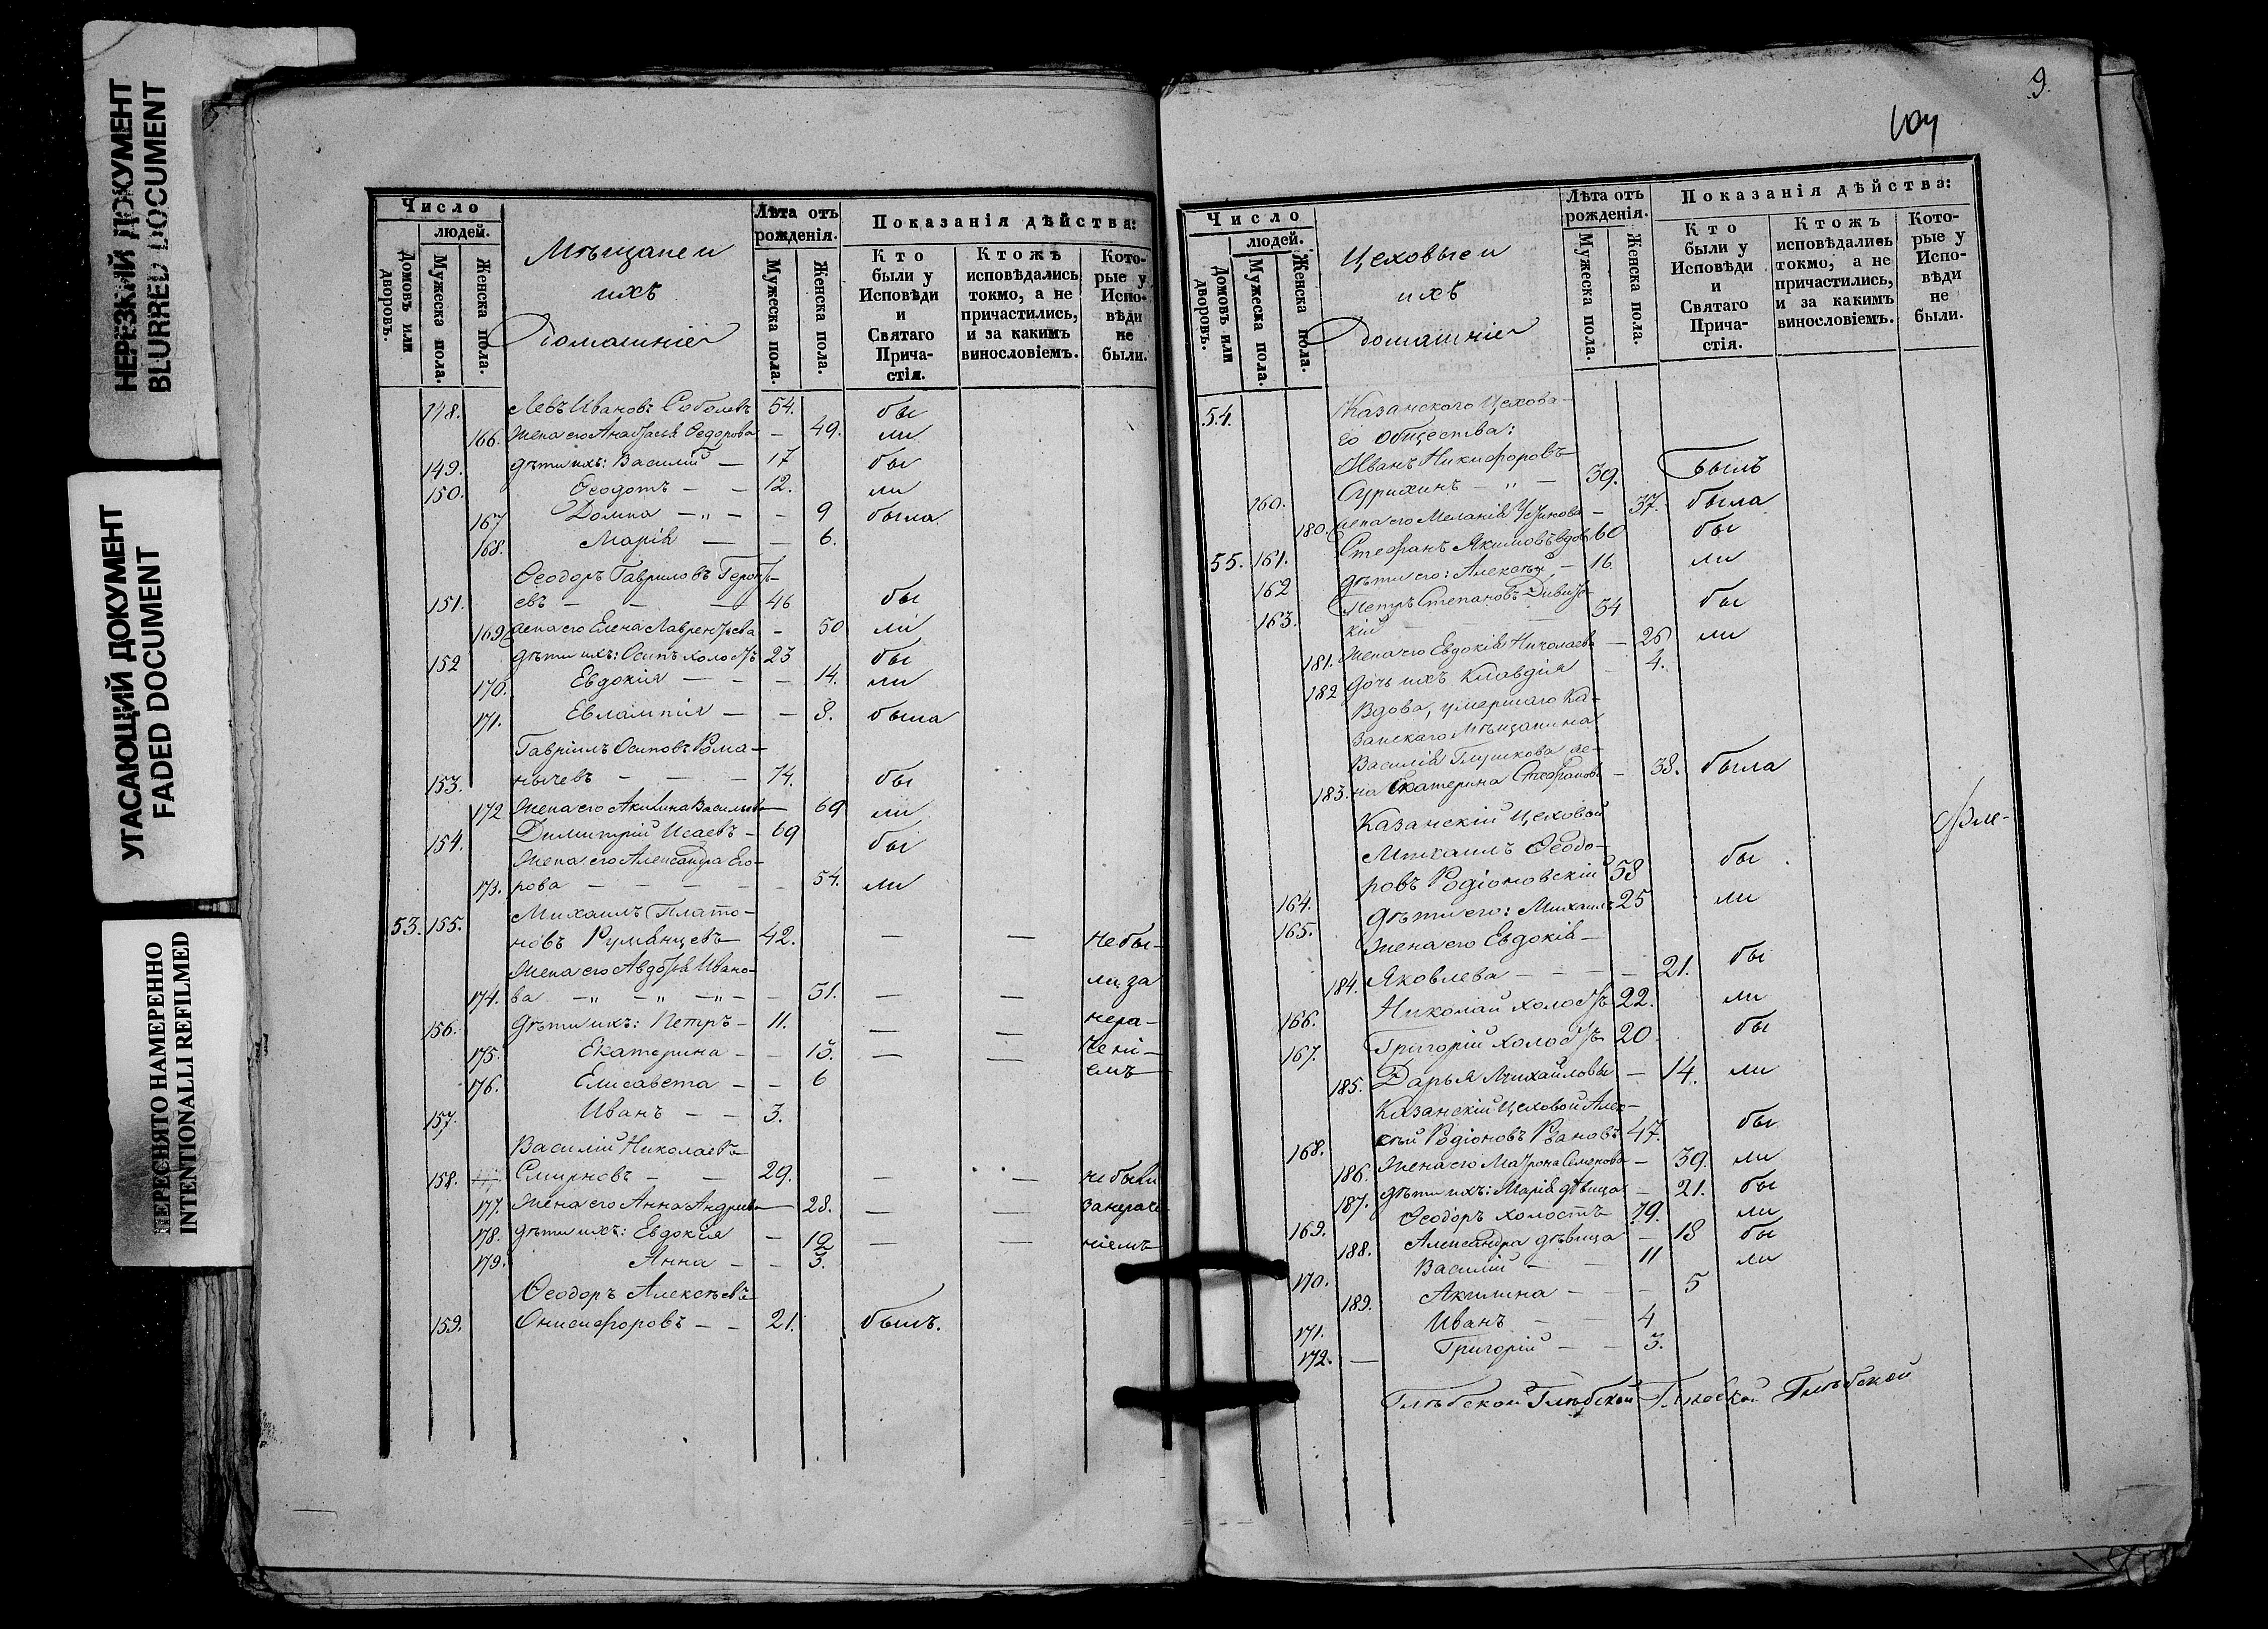 НЕРЕЗКИЙ ДОКУМЕНТ
BLURRED DOCUMENT
УГАСАЮЩИЙ ДОКУМЕНТ
FADED DOCUMENT
ПЕРЕСНЯТО НАМЕРЕННО
INTENTIONALLI REFILMED
Число
людей.
Домовъ или дворовъ.
Мужеска пола.
Женска пола.
Мѣщане и
ихъ
Домашніе
Лѣта отъ рожденія.
Мужеска пола.
Женска пола.
Показанія дѣйства:
Кто были у Исповѣди и Святаго Причастія.
Ктожъ исповѣдались токмо, а не причастились, и за какимъ винословіемъ.
Которые у Исповѣди не были.
148. Левъ Ивановъ Соболевъ 54. бы
166. Жена его Анастасья Федорова — 49. ли
149. дѣти ихъ: Василій — 17 бы
150. Феодотъ — — 12. ли
167 Домна — „ — — 9 была
168. Марія — — 6.
Феодоръ Гавриловъ
151. евъ — — — 46 бы
169 Жена его Елена Лаврентьева — 50 ли
152 дѣти ихъ: Осипъ холостъ 23 бы
170. Евдокія — — — 14. ли
171. Евлампія — — 8. была
Гавріилъ Осиповъ Рома-
153. нычевъ — — — 74. бы
172 Жена его Акилина Васильева — 69 ли
154. Димитрій Исаевъ — 69 бы
Жена его Александра Его-
173. рова — — — — — 54. ли
53. 155. Михаилъ Плато-
новъ Румянцевъ 42. — — Не бы-
Жена его Авдотья Ивано- ли за
174. ва — „ — „ — „ — — 31. — — нера-
156. дѣти ихъ: Петръ — 11. — — чені-
175. Екатерина — — 15. — — емъ
176. Елисавета — — 6
157. Иванъ — — 3.
Василій Николаевъ
158. Смирновъ — — 29. — — не были
177. Жена его Анна Андреева — 28. — — за нераче-
178. дѣти ихъ: Евдокія — 12 — — ніемъ
179. Анна — — 3.
Феодоръ Алексѣевъ
159. Онисифоровъ — — 21. былъ.
9.
109
Число
людей.
Домовъ или дворовъ.
Мужеска пола.
Женска пола.
Цеховые и
ихъ
Домашніе
Лѣта отъ рожденія.
Мужеска пола.
Женска пола.
Показанія дѣйства:
Кто были у Исповѣди и Святаго Причастія.
Ктожъ исповѣдались токмо, а не причастились, и за какимъ винословіемъ.
Которые у Исповѣди не были.
54. Казанского Цехова-
го общества:
Иванъ Никифоровъ
160. Сурихинъ — „ — 39. былъ
180. Жена его Меланія Устинова — 37. была
55. 161. Стефанъ Якимовъ вдов 60 бы
162 дѣти его: Алексѣй — 16. ли
Петръ Степановъ
163. кій 54 бы
181. Жена его Евдокія Николаева — 26 ли
182 дочь ихъ Клавдія — 4.
Вдова, умершаго Ка-
занскаго Мѣщанина
Василія Глушкова же-
183. на Екатерина Стефанова — 38. была
Казанскій Цеховой
Михаилъ Феодо-
164. ровъ Родіоновскій 58 бы
165. дѣти его: Михаилъ 25 ли
Жена его Евдокія
184. Яковлева — — — — 21. бы
166. Николай холостъ 22. ли
167. Григорій холостъ 20. бы
185. Дарья Михайловы — 14. ли
Казанскій Цеховой Алек-
168. сѣй Родіоновъ 47. бы
186. Жена его Матрона Семенова — 39. ли
187. дѣти ихъ: Марія дѣвица — 21. бы
169. Феодоръ холостъ 19. ли
188. Александра дѣвица — 18 бы
170. Василій — — 11 ли
189. Акилина — — — 5
171. Иванъ — — 4
172. — Григорій — — 3.
Глѣбской Глѣбской Глѣбской Глѣбской